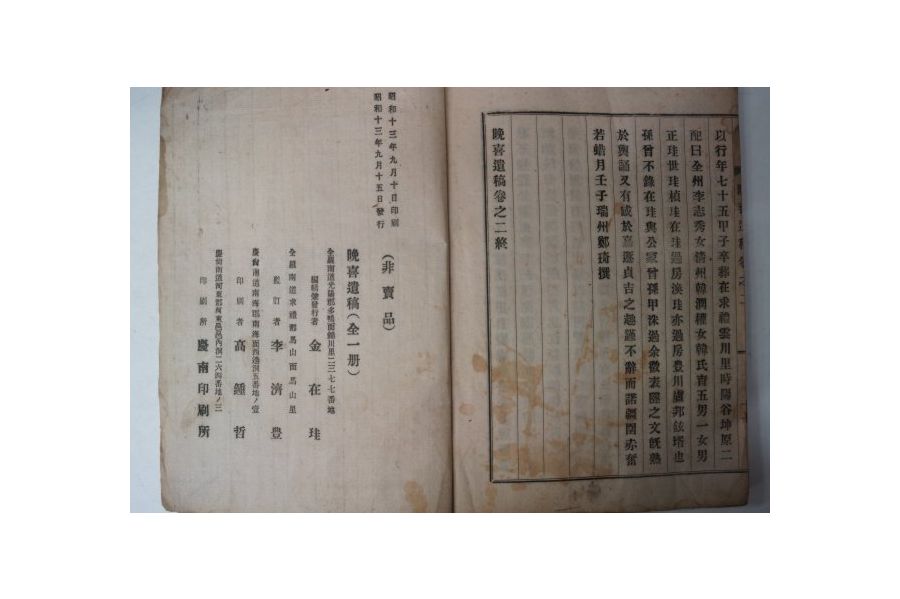 以行年七十五甲子卒葬在求禮雲川里時陽谷坤原二
配曰全州李志秀女清州韓潤權女韓氏育五男一女男
正珪世珪楨珪在珪過房渙珪亦過房豊川盧邦鉉壻也
孫曾不錄在珪與公冢曾孫甲洙過余徵表隧之文旣熟
於輿誦又有感於嘉遯貞吉之趣謹不辭而諾疆圉赤奮
若皓月壬子瑞州鄭琦撰
晚喜遺稿卷之二終
昭和十三年九月十日印刷
昭和十三年九月十五日發行
(非賣品)
晚喜遺稿(全一册)
全羅南道光陽郡多鴨面錦川里二三七七番地
編輯兼發行者 金在珪
全羅南道求禮郡馬山面馬山里
監訂者 李濟豊
慶尙南道南海郡南海面西邊洞五番地ノ壹
印刷者 高鍾哲
慶尙南道河東郡河東邑邑內洞二六四番地ノ三
印刷所 慶南印刷所